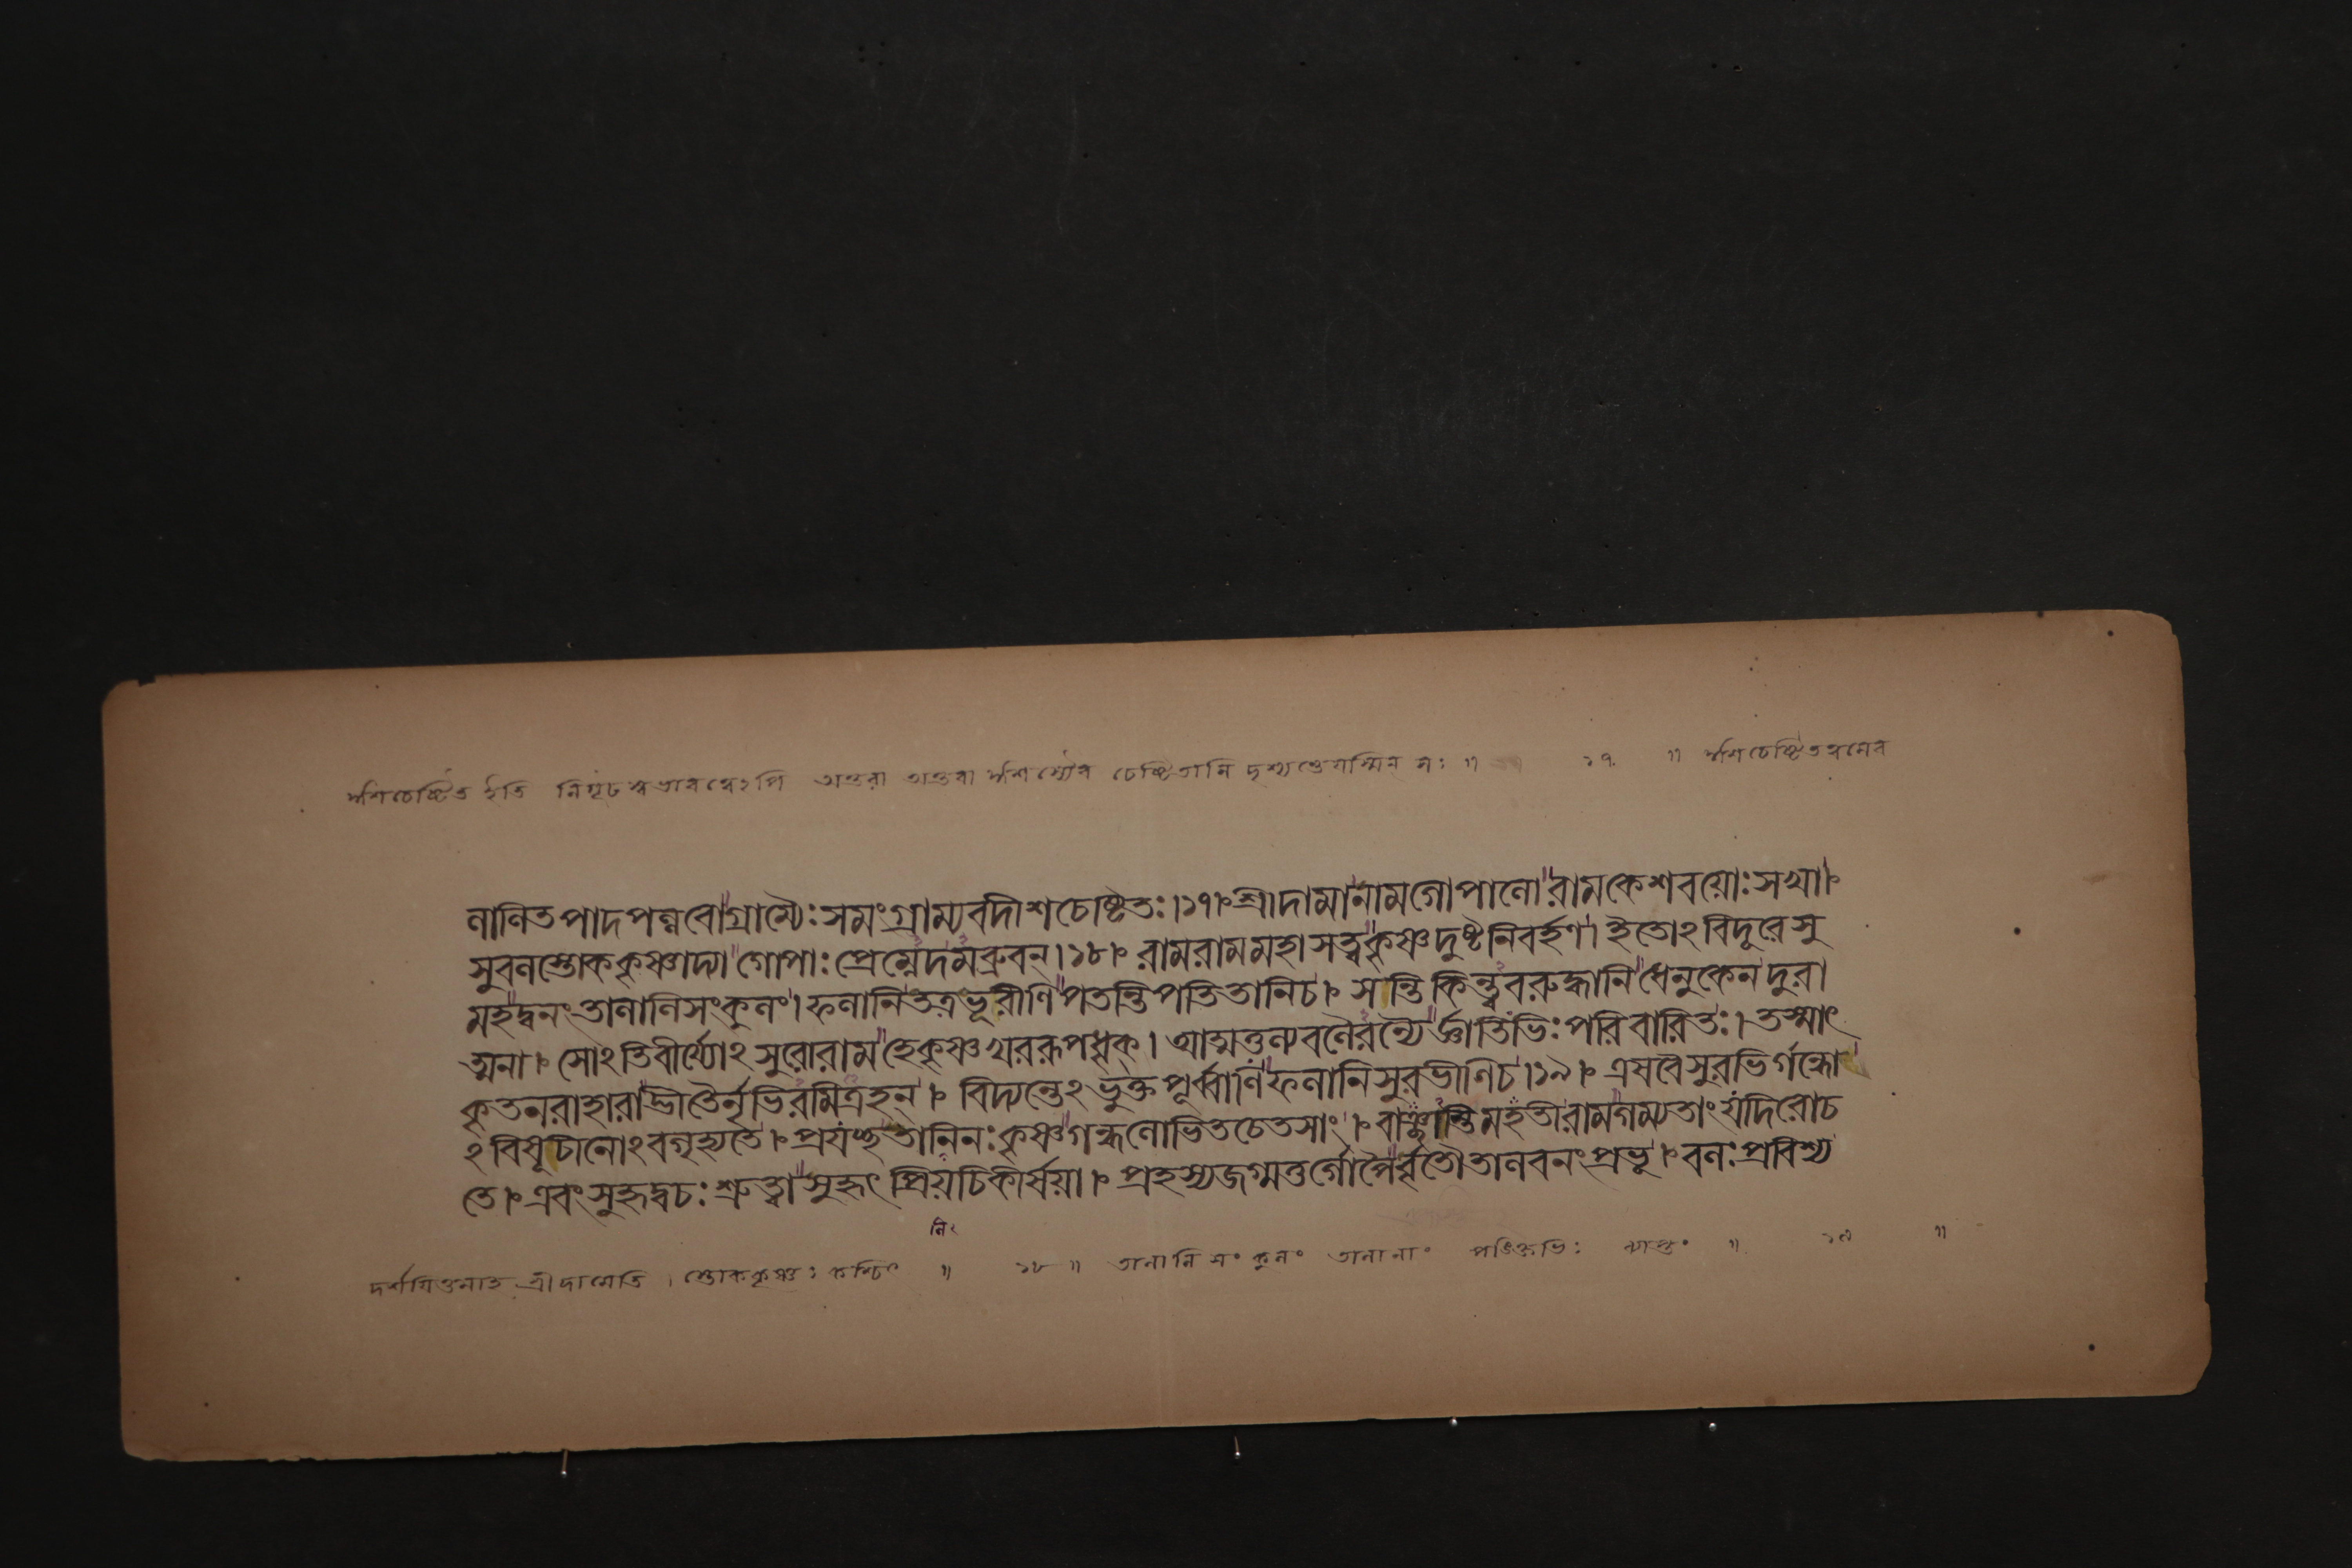 ঈশচেষ্টিত ইতি নিগূঢ স্বভাবত্বেঽপি অন্তরা অন্তরা ঈশস্যৈব চেষ্টিতানি দৃশ্যন্তেযস্মিন্ সঃ ॥ ১৭ ॥ ঈশচেষ্টিতত্বমেব
লালিতপাদপল্লবোগ্রাম্যৈঃসমংগ্রাম্যবদীশচেষ্টিতঃ।১৭।শ্রীদামানামগোপালোরামকেশবয়োঃসখা।
সুবলস্তোককৃষ্ণাদ্যা গোপাঃপ্রেম্নেদমব্রুবন্।১৮। রামরামমহাসত্ত্বকৃষ্ণদুষ্টনিবর্হণ। ইতোঽবিদূরেসু
মহদ্বনংতালালিসংকুলং।ফলানিতত্রভূরীণিপতন্তিপতিতানিচ। সন্তিকিন্ত্ববরুদ্ধানিধেনুকেনদুরা
ত্মনা।সোঽতিবীর্য্যোঽসুরোরামহেকৃষ্ণখররূপধৃক্। আত্মতুল্যবলৈরন্যৈর্জ্ঞাতিভিঃপরিবারিতঃ।তস্মাৎ
কৃতনরাহারাদ্ভীতৈর্নৃভিরমিত্রহন্। বিদ্যন্তেঽভুক্তপূর্ব্বাণিফলানিসুরভীণিচ।১৯। এষবৈসুরভির্গন্ধো
ঽবিষূচীনোঽবগৃহ্যতে।প্রযচ্ছতানিনঃকৃষ্ণগন্ধলোভিতচেতসাং।বাঞ্ছাস্তিমহতীরামগম্যতাংযদিরোচ
তে।এবংসুহৃদ্বচঃশ্রুত্বাসুহৃৎপ্রিয়চিকীর্ষয়া। প্রহস্যজগ্মতুর্গোপৈর্বৃতৌতালবনংপ্রভূ।বলঃপ্রবিশ্য
দর্শয়িতুমাহ শ্রীদামেতি । স্তোককৃষ্ণঃ কশ্চিৎ ॥ ১৮ ॥ তালালি সংকুলং তালানাং পঙক্তিভিঃ ব্যাপ্তং ॥ ১৯ ॥